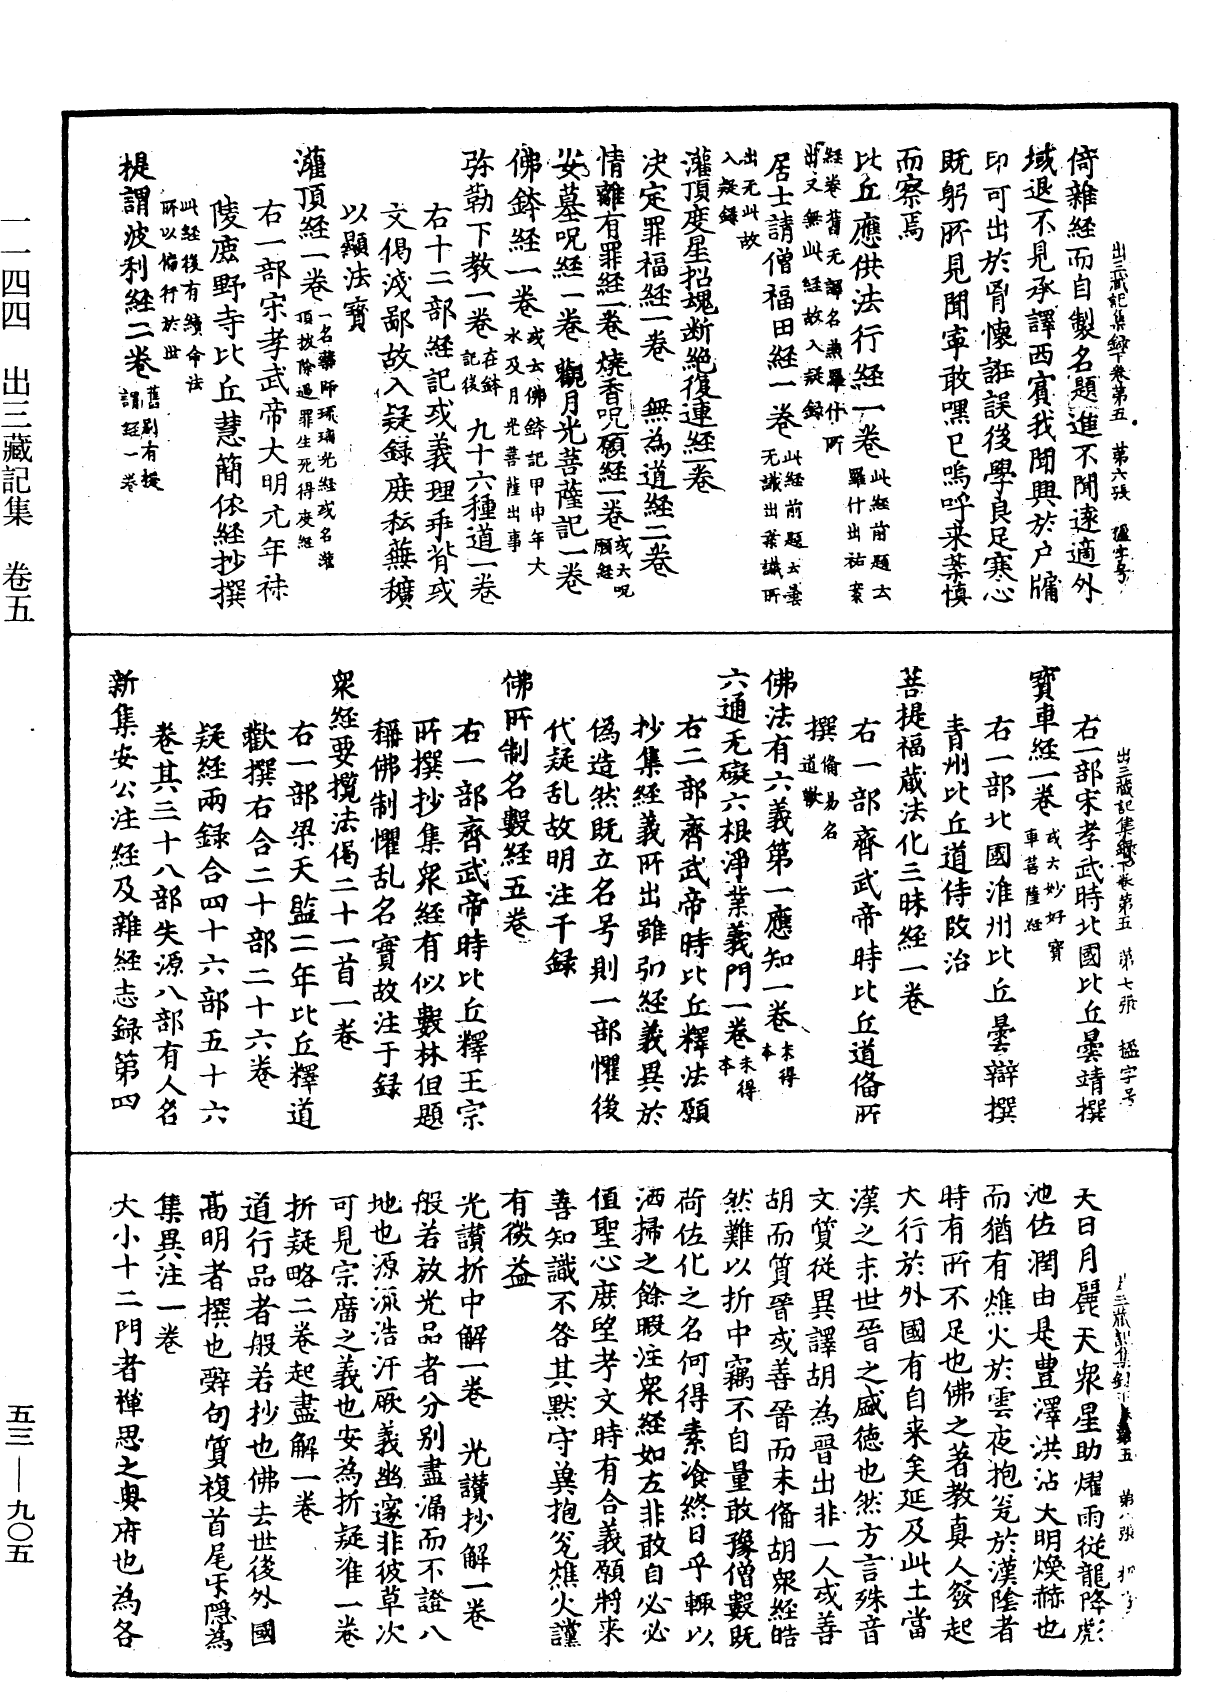 出三藏記集錄下卷第五　第六張　楹字号
倚雜經而自製名題進不聞遠適外
域退不見承譯西賓我聞興於户牖
印可出於胷懷誑誤後學良足寒心
既躬所見聞寧敢嘿已嗚呼来葉慎
而察焉
比丘應供法行經一卷此經前題云羅什出祐案
經卷舊无譯名兼羅什所出又無此經故入疑録
居士請僧福田經一卷此經前題云曇无讖出案讖所
出无此故入疑録
灌頂度星招魂断絶復連經一卷
决定罪福經一卷　無為道經二卷
情離有罪經一卷燒香呪願經一卷或云呪願經
安墓呪經一卷觀月光菩薩記一卷
佛鉢經一卷或云佛鉢記甲申年大水及月光菩薩出事
弥勒下教一卷在鉢記後　九十六種道一卷
右十二部經記或義理乖背或
文偈浅鄙故入疑録庶耘蕪穬
以顯法寶
灌頂經一卷一名藥師琉璃光經或名灌頂拔除過罪生死得度經
右一部宋孝武帝大明元年秣
陵鹿野寺比丘慧簡依經抄撰
此經後有續命法所以偏行於世
提謂波利經二卷舊别有提謂經一卷
出三藏記集錄下卷第五　第七張　楹字号
右一部宋孝武時北國比丘曇靖撰
寶車經一卷或云妙好寶車菩薩經
右一部北國淮州比丘曇辯撰
青州比丘道侍改治
菩提福藏法化三昧經一卷
右一部齊武帝時比丘道備所
撰備易名道歡
佛法有六義第一應知一卷未得本
六通无礙六根淨業義門一卷未得本
右二部齊武帝時比丘釋法願
抄集經義所出雖弘經義異於
偽造然既立名号則一部懼後
代疑乱故明注于録
佛所制名數經五卷
右一部齊武帝時比丘釋王宗
所撰抄集衆經有似數林但題
稱佛制懼乱名實故注于録
衆經要攬法偈二十一首一卷
右一部梁天監二年比丘釋道
歡撰右合二十部二十六卷
疑經兩録合四十六部五十六
卷其三十八部失源八部有人名
新集安公注經及雜經志録第四
出三藏記集錄下卷第五　第八張
天日月麗天衆星助燿雨從龍降滮
池佐潤由是豊澤洪沾大明煥赫也
而猶有燋火於雲夜抱瓮於漢陰者
時有所不足也佛之著教真人發起
大行於外國有自来矣延及此土當
漢之末世晉之盛徳也然方言殊音
文質従異譯胡為晉出非一人或善
胡而質晉或善晉而未俻胡衆經皓
然難以折中竊不自量敢豫僧數既
荷佐化之名何得素飡終日乎輒以
洒掃之餘暇注衆經如左非敢自必必
值聖心庶望考文時有合義願将来
善知識不咎其默守冀抱瓮燋火讜
有微益
光讃折中解一卷　光讃抄解一卷
般若放光品者分别盡漏而不證八
地也源流浩汗厥義幽邃非彼草次
可見宗廣之義也安為折疑准一卷
折疑略二卷起盡解一卷
道行品者般若抄也佛去世後外國
髙明者撰也辭句質複首尾㸦隠為
集異注一卷
大小十二門者禪思之奥府也為各
一一四四　出三藏記集　卷五
五三——九〇五